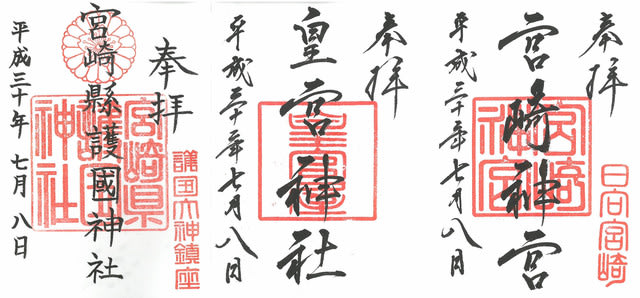 奉拝
宮崎神宮
平成三十年七月八日
宮崎神宮
日向宮崎
奉拝
皇宮神社
平成三十年七月八日
皇宮
奉拝
宮崎縣護國神社
平成三十年 七月 八日
宮崎県護国神社
護国大神鎮座